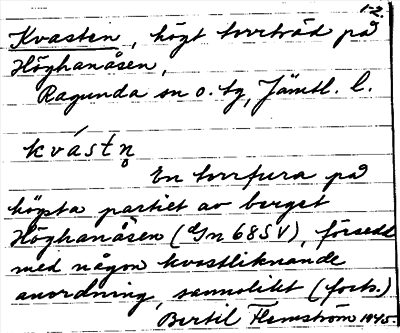 1-2.
Kvasten, högt torrträd på
Höghanåsen,
Ragunda sn o. tg, Jämtl. l.
kvástn̥
En torrfura på
högsta partiet av berget
Höghanåsen (Gn 68SV), försedd
med någon kvastliknande
anordning, sannolikt (forts.)
Bertil Flemström 1945.